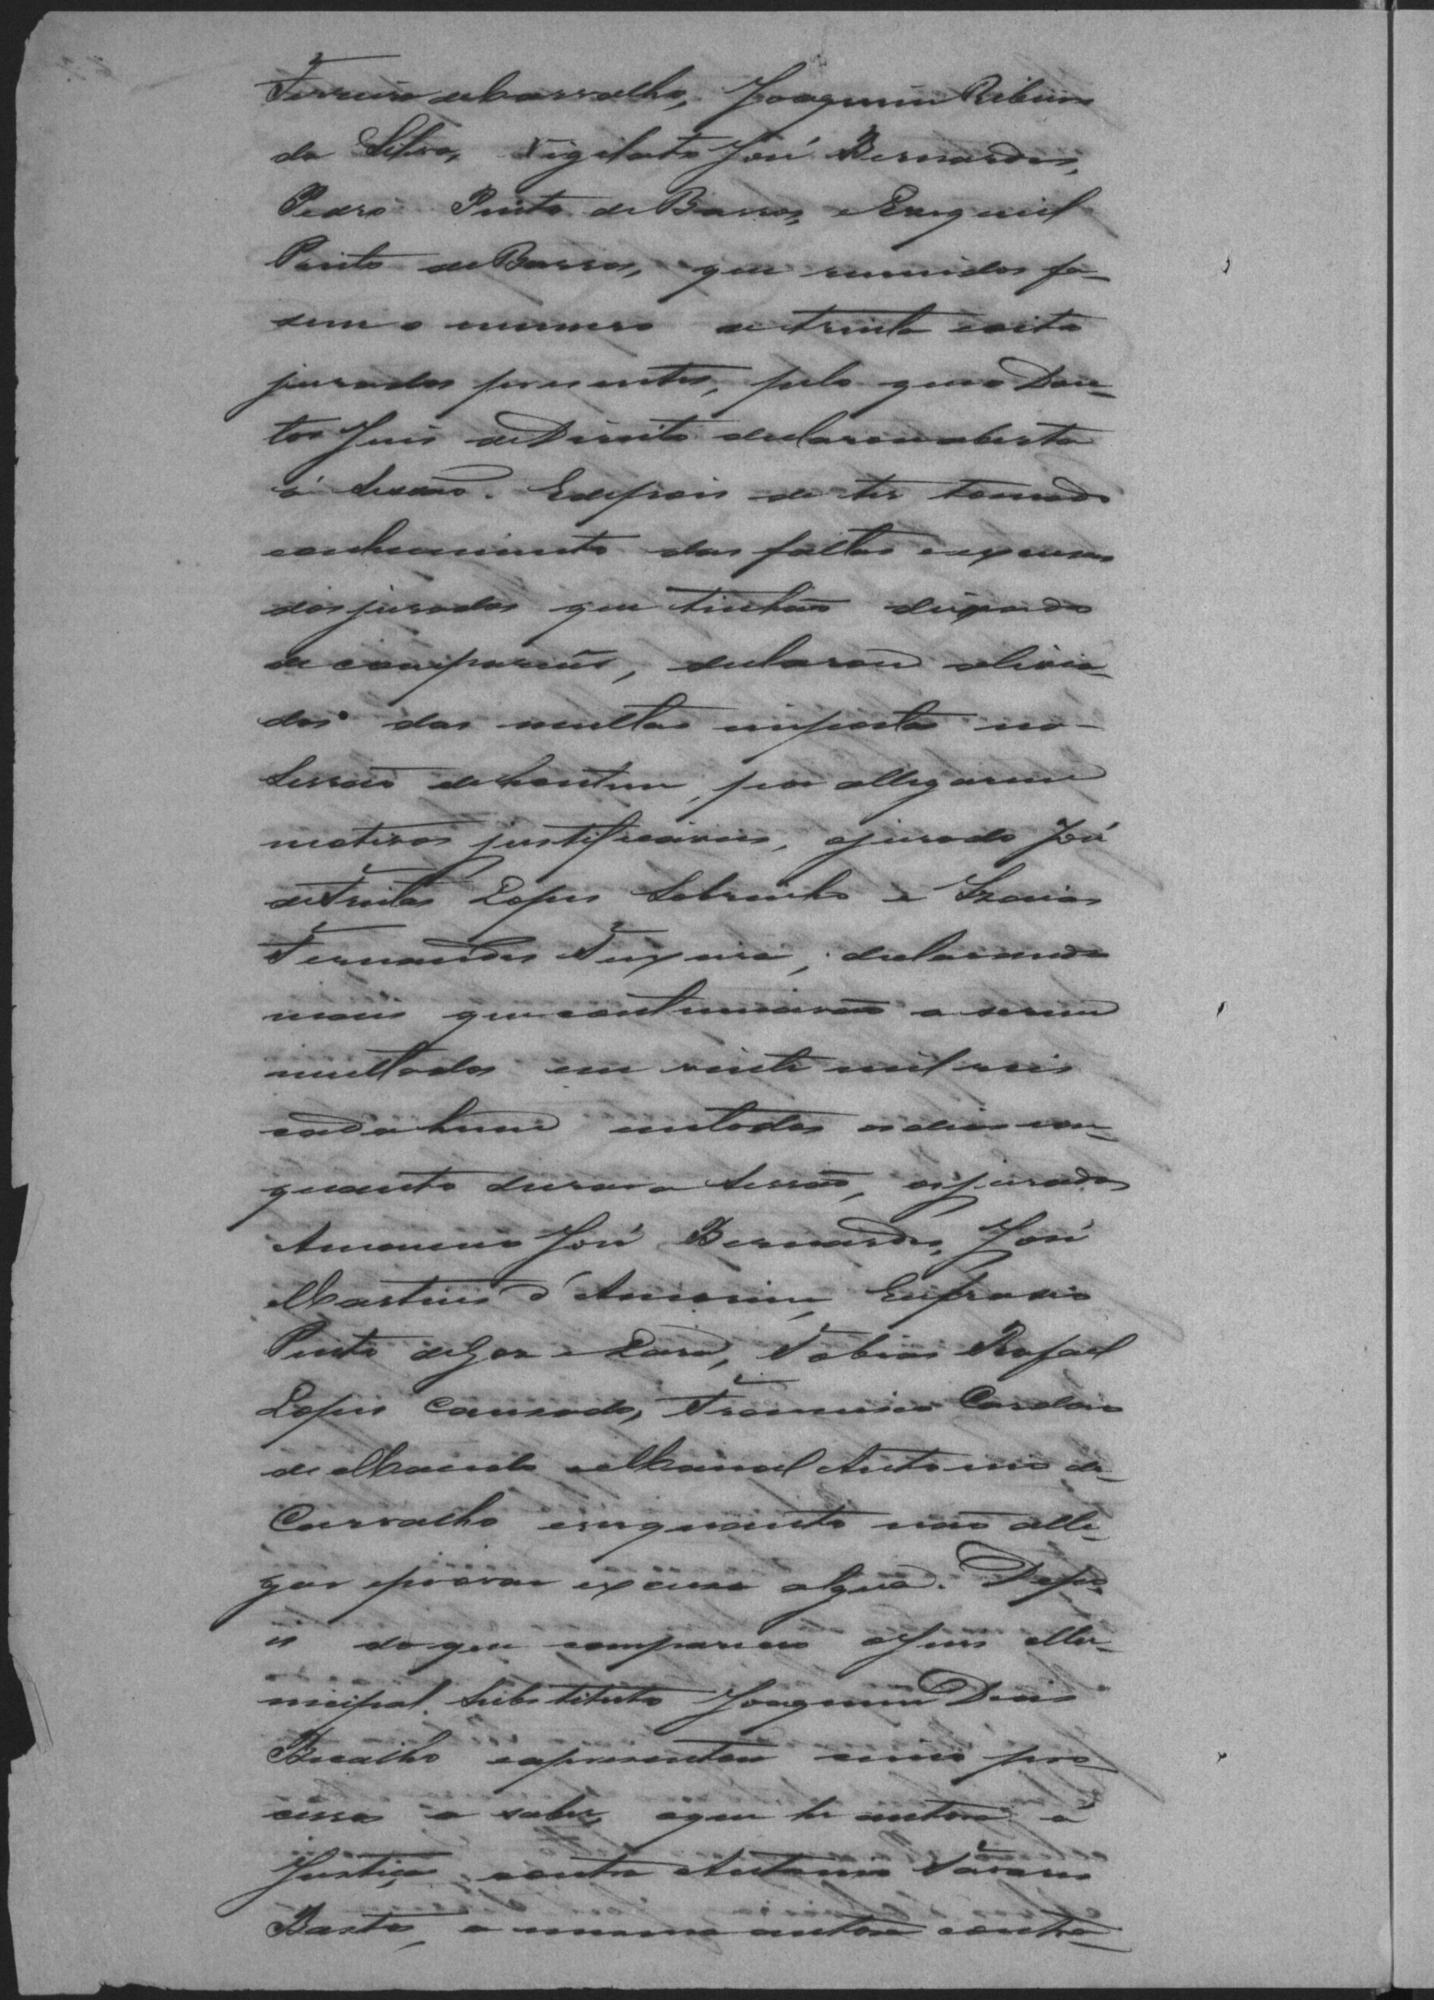 Ferreira de Carvalho, Joaquim Ribeiro
da Silva, Vigilato José Bernardes,
Pedro Pinto de Barros, e Ezequiel
Pinto de Barros, que reunidos fa-
sem o numero de trinta e oito
jurados presentes, pelo que o Dou-
tor Juis de Direito declarou aberta
á Sessão. E depois de ter tomado
conhecimento das faltas e excusas
dos jurados que tinhão deixado
de comparecer, declarou alivia-
dos das multas imposta na
Sessão de hontem, por allegarem
motivos justificaveis, o jurado José
de Freitas Lopes Sobrinho e Izaias
Fernandes Teixeira, declarando
mais que continuavão a serem
multados em vinte mil reis
cada hum em todos os dias em-
quanto durar a Sessão, os jurados
José Bernardes, José
Martins d'Amorim, Eufrasio
Pinto de Gos e Lara, Tobias Rafael
Lopes Cansado, Francisco Cardoso
de Macedo e Manoel Antonio de
Carvalho emquanto não alle-
gar e provar excusa algua. Depo-
is do que compareceu o Juis Mu-
nicipal Substituto Joaquim Dias
Bicalho e apresentou cinco pro-
cessos a saber, o que he autora a
Justiça contra Antonio Tavares
Basto, a mesma autora contra